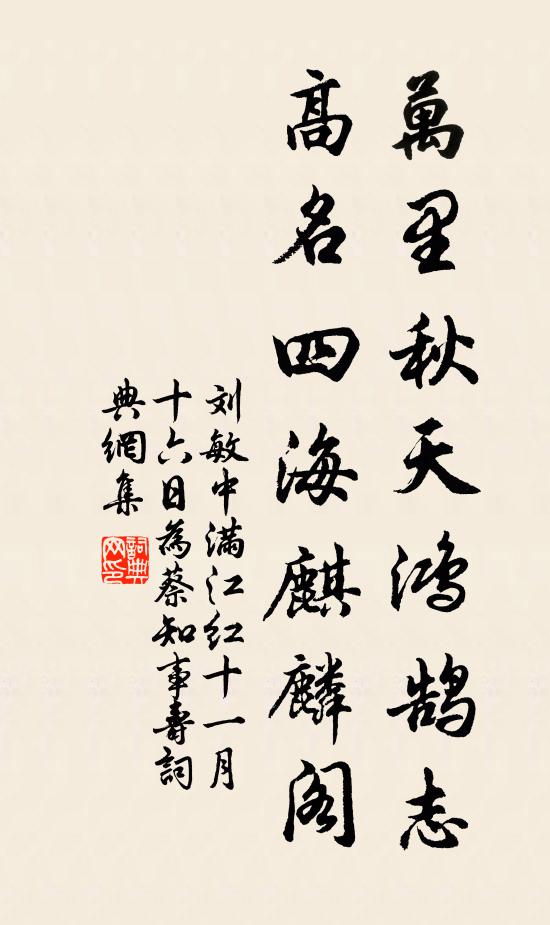 萬里秋天鴻鵠志
高名四海麒麟阁
刘敏中满江红十一月
十六日為蔡知事壽詞
典網集
詞典
网印